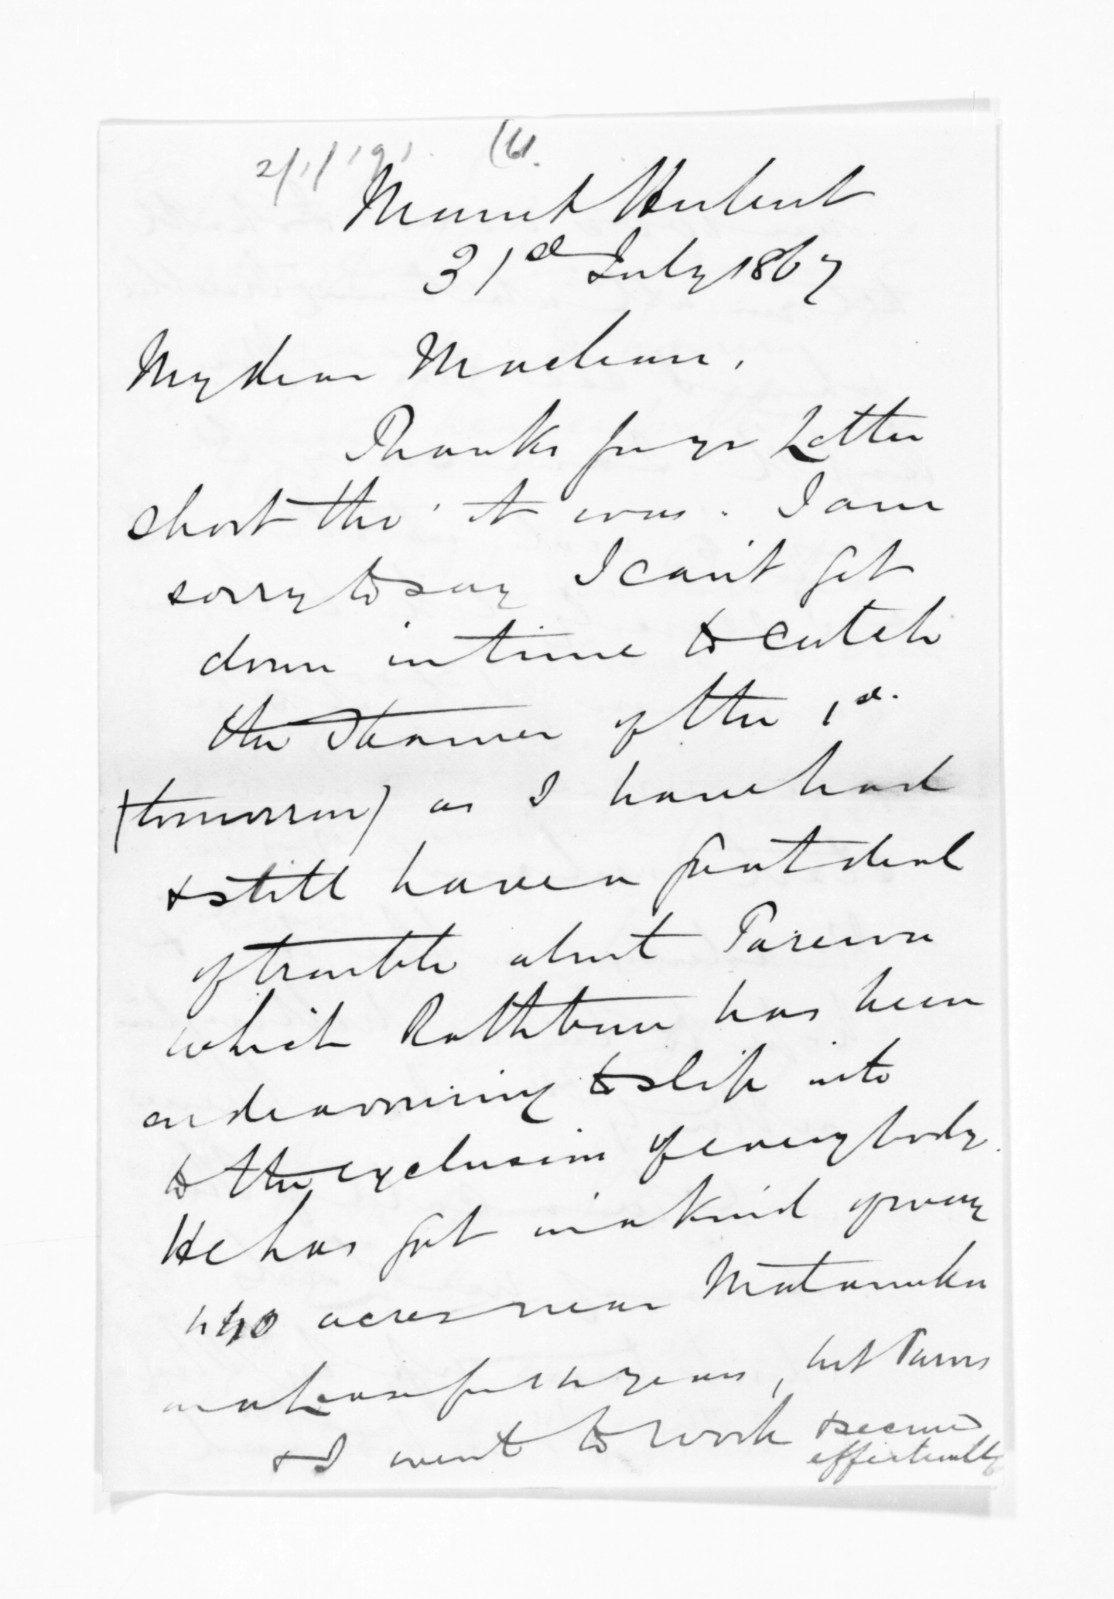 2/1/'91. (61.
Mount Herbert
31st July 1867
My dear Maclean,
Thanks for yr Letter
short tho' it was. I am
sorry to say I can't get
down in time to catch
the Steamer of the 1st.
(tomorrow) as I have had
& still have a great deal
of trouble about Parewa
which Rathbone has been
endeavouring to slip into
to the exclusion of everybody.
He has got in a kind of way
440 acres near
on a Lease for years, but Purvis
& I went to work & secured
effectually